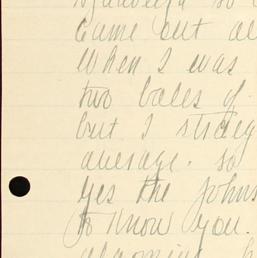 came out al
When I was
two bales of
but I straig
average. so
yes the Johns
to know you.